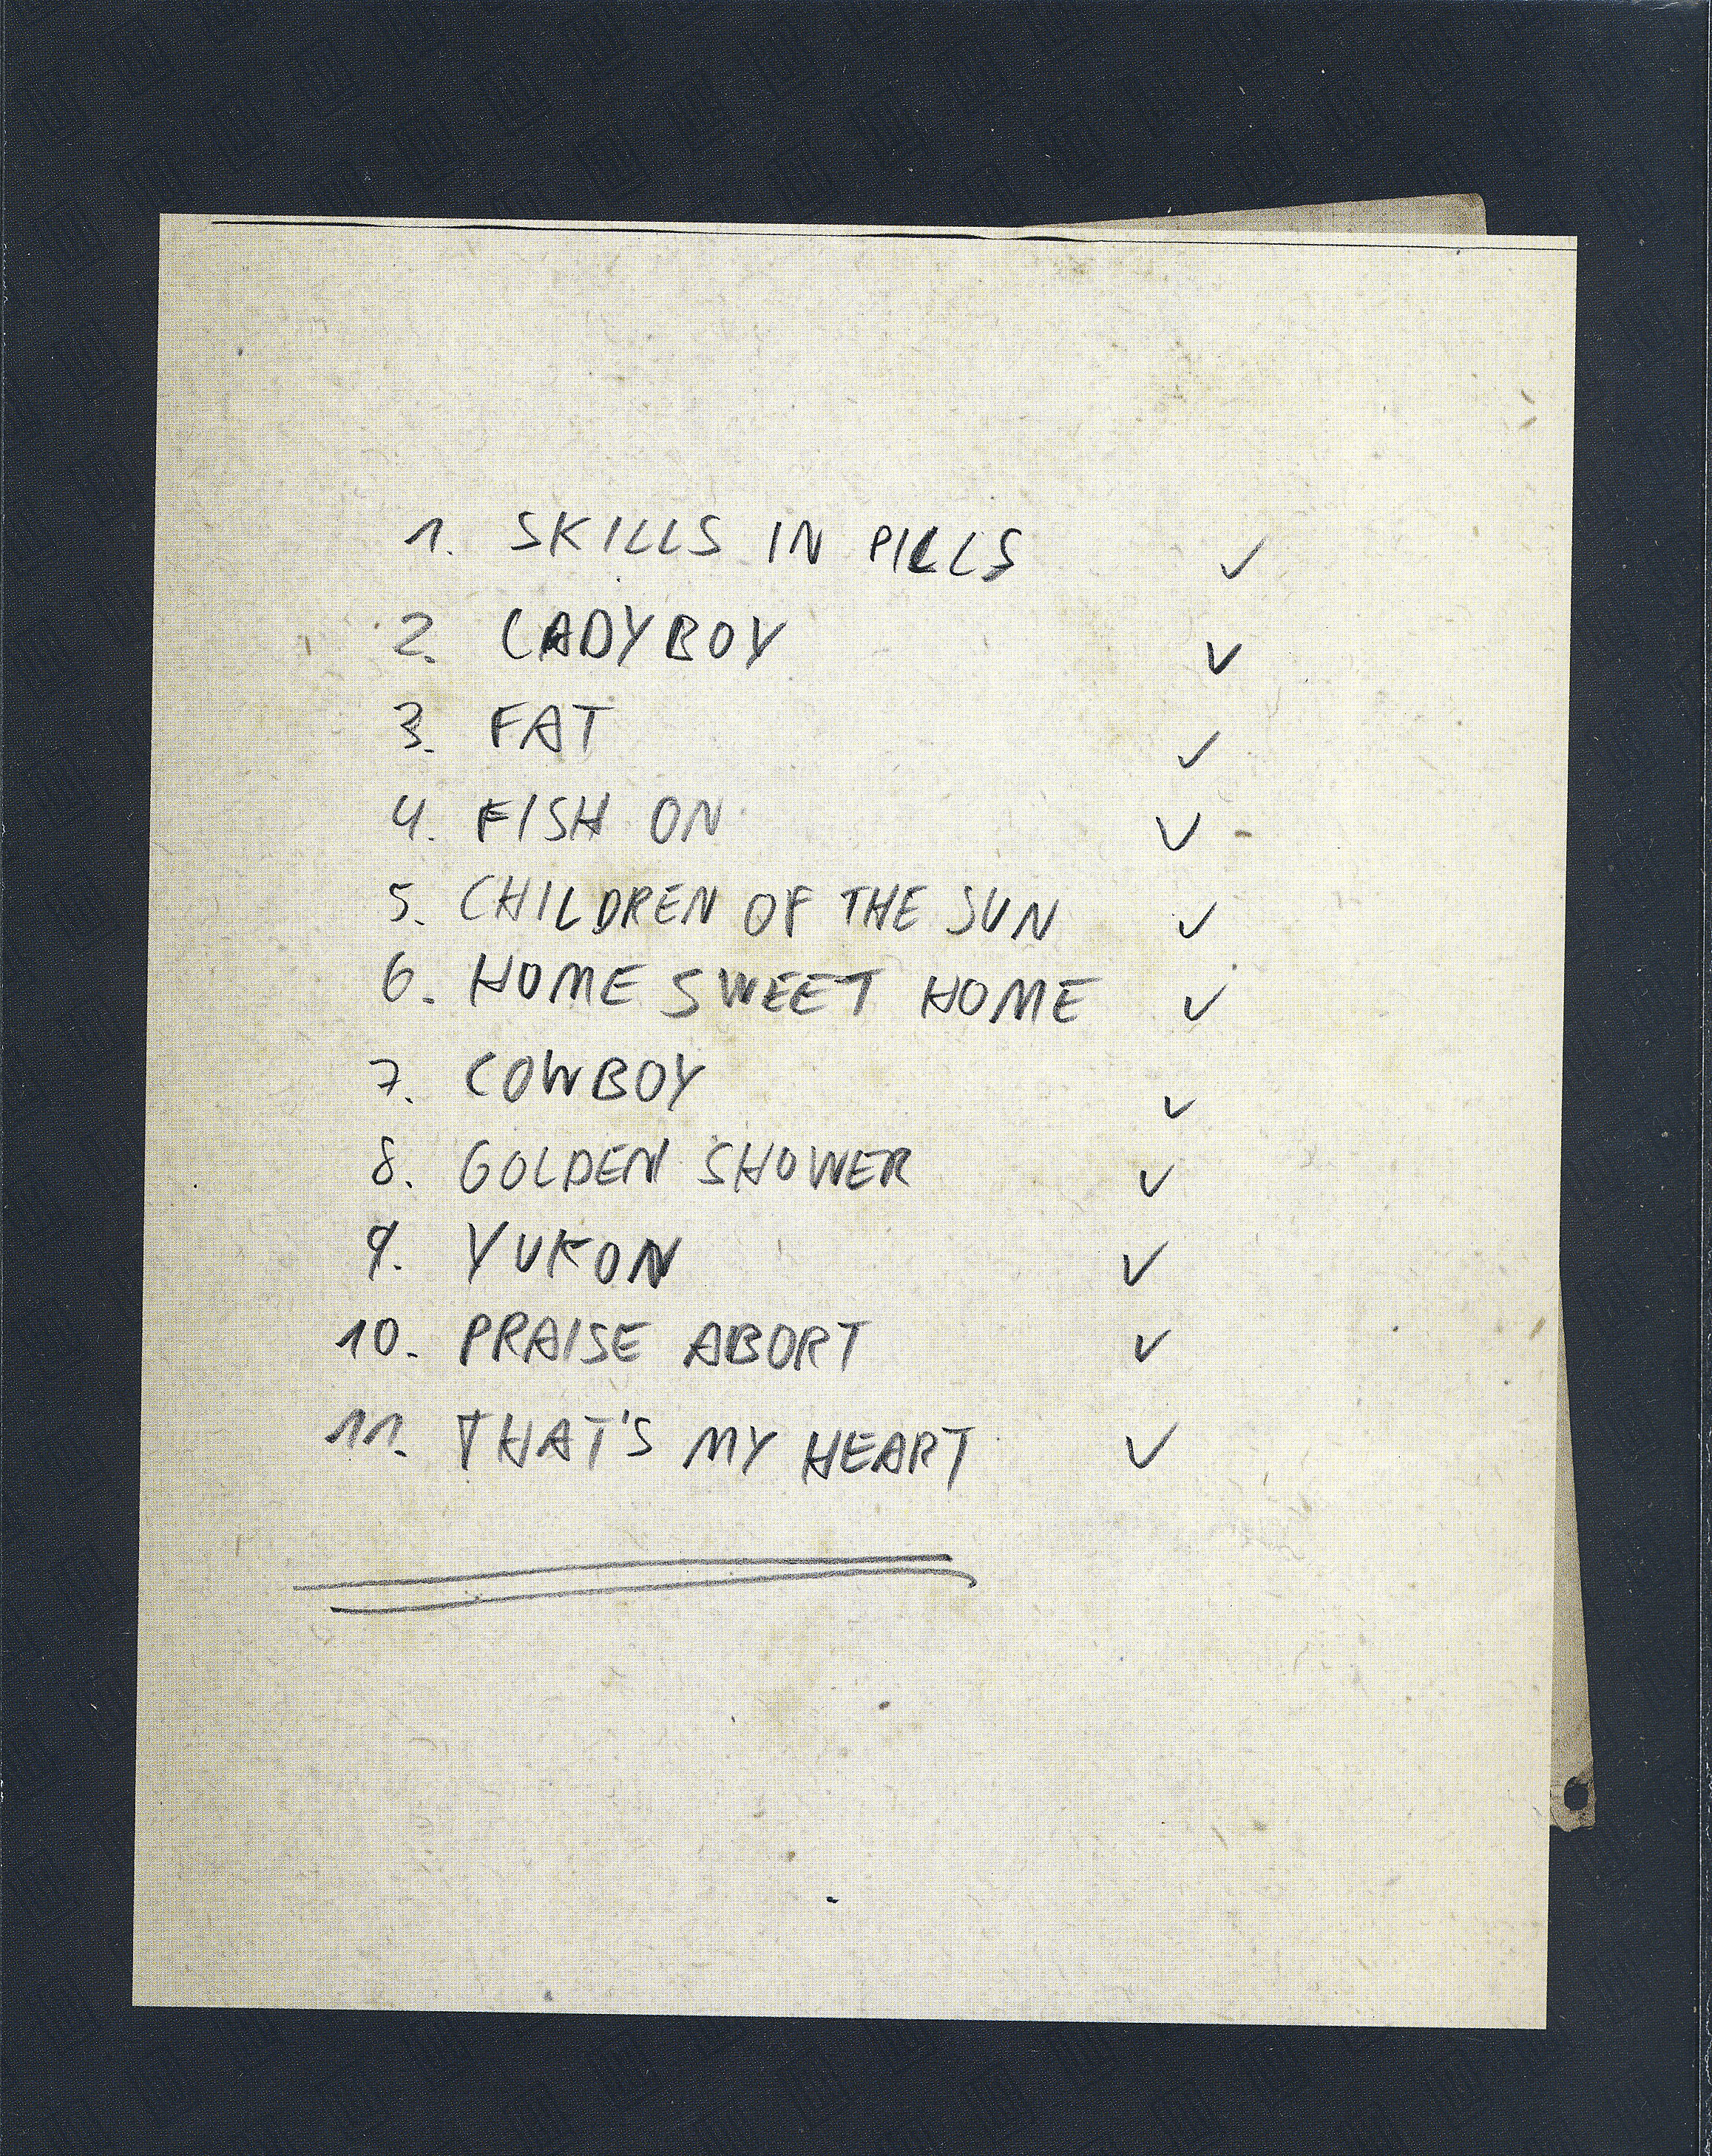 1. SKILLS IN PILLS ✓
2. LADYBOY ✓
3. FAT ✓
4. FISH ON ✓
5. CHILDREN OF THE SUN ✓
6. HOME SWEET HOME ✓
7. COWBOY ✓
8. GOLDEN SHOWER ✓
9. YUKON ✓
10. PRAISE ABORT ✓
11. THAT'S MY HEART ✓